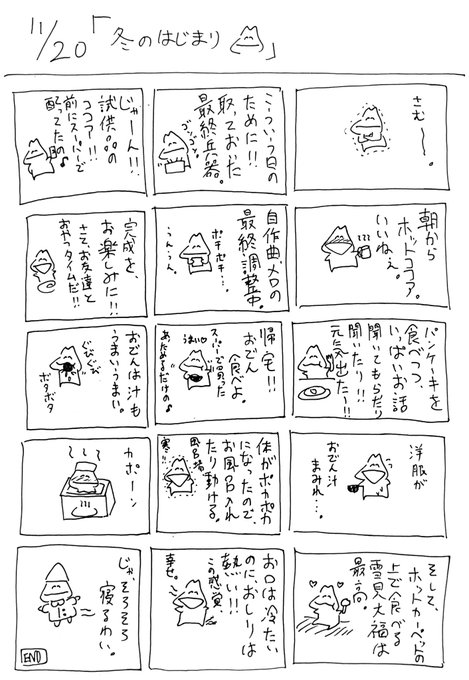 11/20「冬のはじまり」
さむ〜〜。
こういう日の
ために!!
取っておいた
最終兵器。
ゴソゴソ
じゃーん!!
試供品の
ココア!!
前にスーパーで
配ってたの♪
朝から
ホットココア。
いいねぇ。
自作曲、メロの
最終調整中。
ポチポチ…。
うん、うん。
完成を
お楽しみに!!
さて、お友達と
おやつタイムだ!!
パンケーキを
食べつつ、
いっぱいお話
聞いてもらったり
聞いたり!!
元気出たー!!
帰宅!!
おでん
食べよ。
うまい♡
スーパーで買った
あっためるだけの♪
おでんは汁も
うまいうまい。
ぐびぐび
ボタボタ
洋服が
おでん汁
まみれ…。
体がポカポカ
になったので、
お風呂入れ
たり動ける。
風呂場
寒い
カポーン
そして、
ホットカーペットの
上で食べる
雪見大福は
最高。
お口は冷たい
のに、おしりは
熱い!!
この感覚、
幸せ。
じゃ、そろそろ
寝るわい。
END